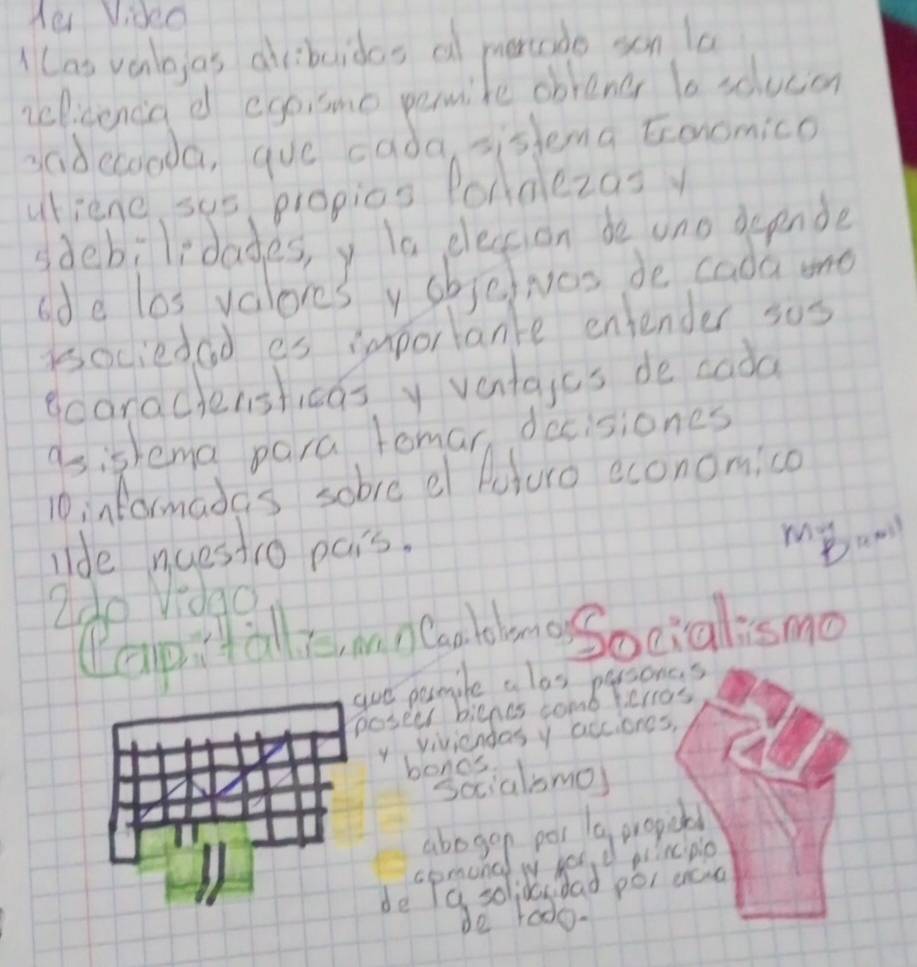 1er Video
1 Las ventajas atribuidas al mercado son la
2 eficencia el egoismo permite obtener la solucion
3 adecuada, que cada sistema Economico
4 tiene sus propias fortalezas y
5 debilidades, y la eleccion de uno depende
6 de los valores y objetivos de cada uno
7 sociedad es importante entender sus
8 caracteristicas y ventajas de cada
9 sistema para tomar decisiones
10 informadas sobre el futuro economico
11 de nuestro pais.
My
2do Video
Capitalismo Capitalismo Socialismo
que permite a las personas
poseer bienes como tierras
y viviendas y acciones,
bonos.
Socialismo
abogan por la propiedad
comunal y por el principio
de la solidaridad por encima
de todo.